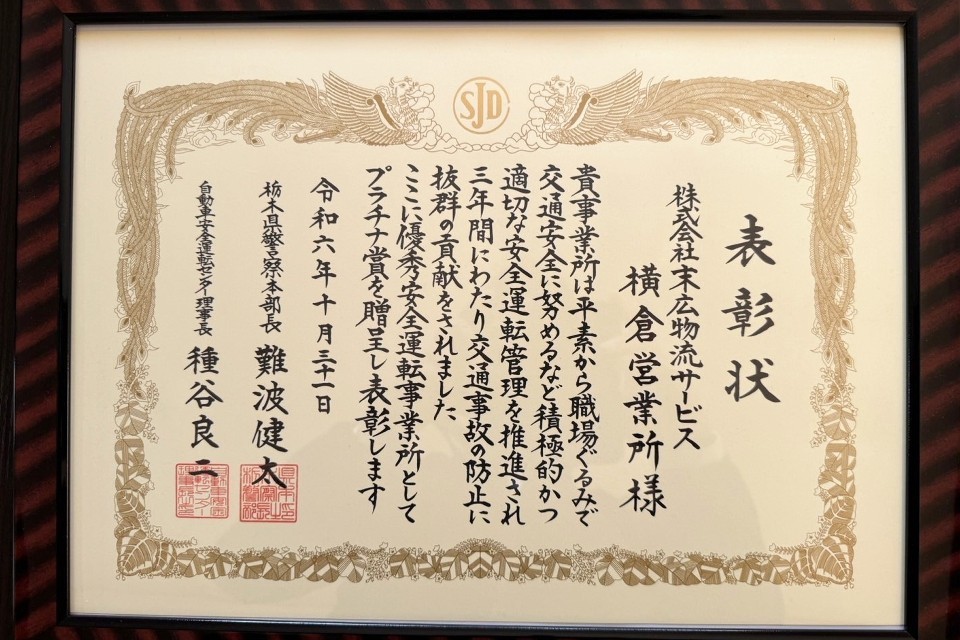 SJD
表彰状
株式会社末広物流サービス
横倉営業所様
貴事業所は平素から職場ぐるみで
交通安全に努めるなど積極的かつ
適切な安全運転管理を推進され
三年間にわたり交通事故の防止に
抜群の貢献をされました
ここに優秀安全運転事業所として
プラチナ賞を贈呈し表彰します
令和六年十月三十一日
栃木県警察本部長 難波健太
自動車安全運転センター理事長 種谷良二